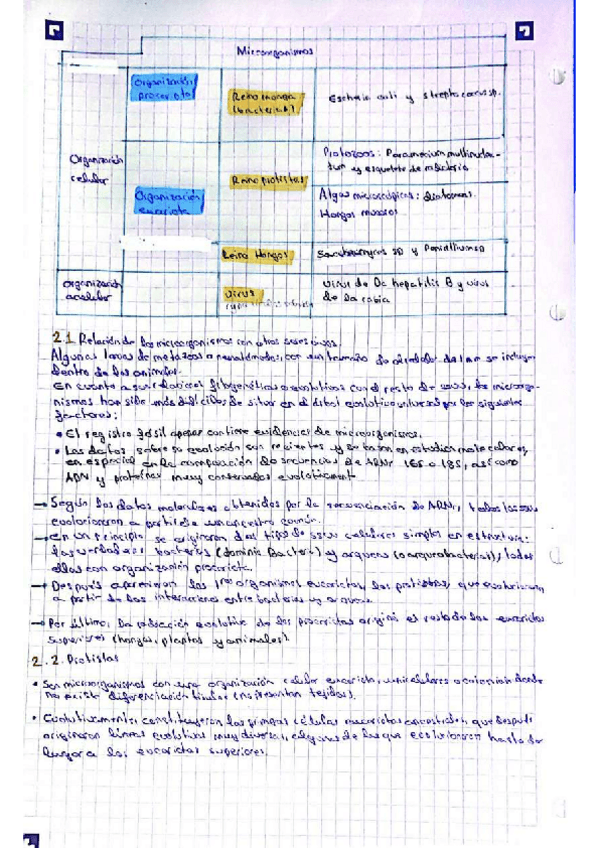 Microorganismos
Organización celular
Organización procariota
Reino monera (bacterias)
y Streptococcus sp.
Organización eucariota
Reino protistas
Protozoos: Paramecium
y esqueleto de radiolario
Algas microscópicas: diatomeas.
Hongos mucosos
Reino Hongos
Saccharomyces sp y Penicillium sp
Organización acelular
Virus
Virus de la hepatitis B y virus
de la rabia
2.1 Relación de los microorganismos con otros seres vivos.
Algunas larvas de metazoos o nematodos, con un tamaño de alrededor de 1 mm se incluyen
dentro de los animales.
En cuanto a sus relaciones filogenéticas o evolutivas con el resto de seres, los microorga-
nismos han sido más difíciles de situar en el árbol evolutivo universal por los siguientes
factores:
• El registro fósil apenas contiene evidencias de microorganismos.
• Los datos sobre su evolución son recientes y se basan en estudios moleculares,
en especial en la comparación de secuencias de ARNr 16S o 18S, así como
ADN y proteínas muy conservadas evolutivament
→ Según los datos moleculares obtenidos por la secuenciación de ARNr, todos los seres
evolucionaron a partir de un ancestro común.
→ En un principio se originaron dos tipos de seres celulares simples en estructura:
las verdaderas bacterias (dominio Bacteria) y arqueas (o arqueobacterias), todas
ellas con organización procariota.
→ Después aparecieron los 1ros organismos eucariotas, los protistas, que evolucionaron
a partir de las interacciones entre bacterias y arqueas.
→ Por último, la radiación evolutiva de los procariotas originó el resto de los eucariotas
superiores (hongos, plantas y animales).
2.2. Protistas
• Son microorganismos con una organización celular eucariota, unicelulares o coloniales donde
no existe diferenciación tisular (no presentan tejidos).
• Evolutivamente, constituyeron las primeras células eucariotas ancestrales, que después
originaron líneas evolutivas muy diversas, algunas de las que evolucionaron hasta dar
lugar a los eucariotas superiores.